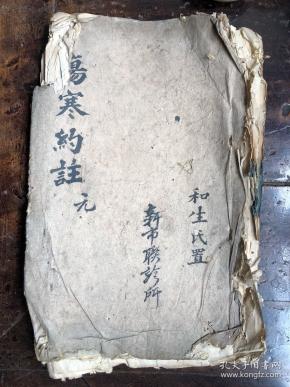 傷寒約註 元
和生氏置
新市聯診所
孔夫子旧书网